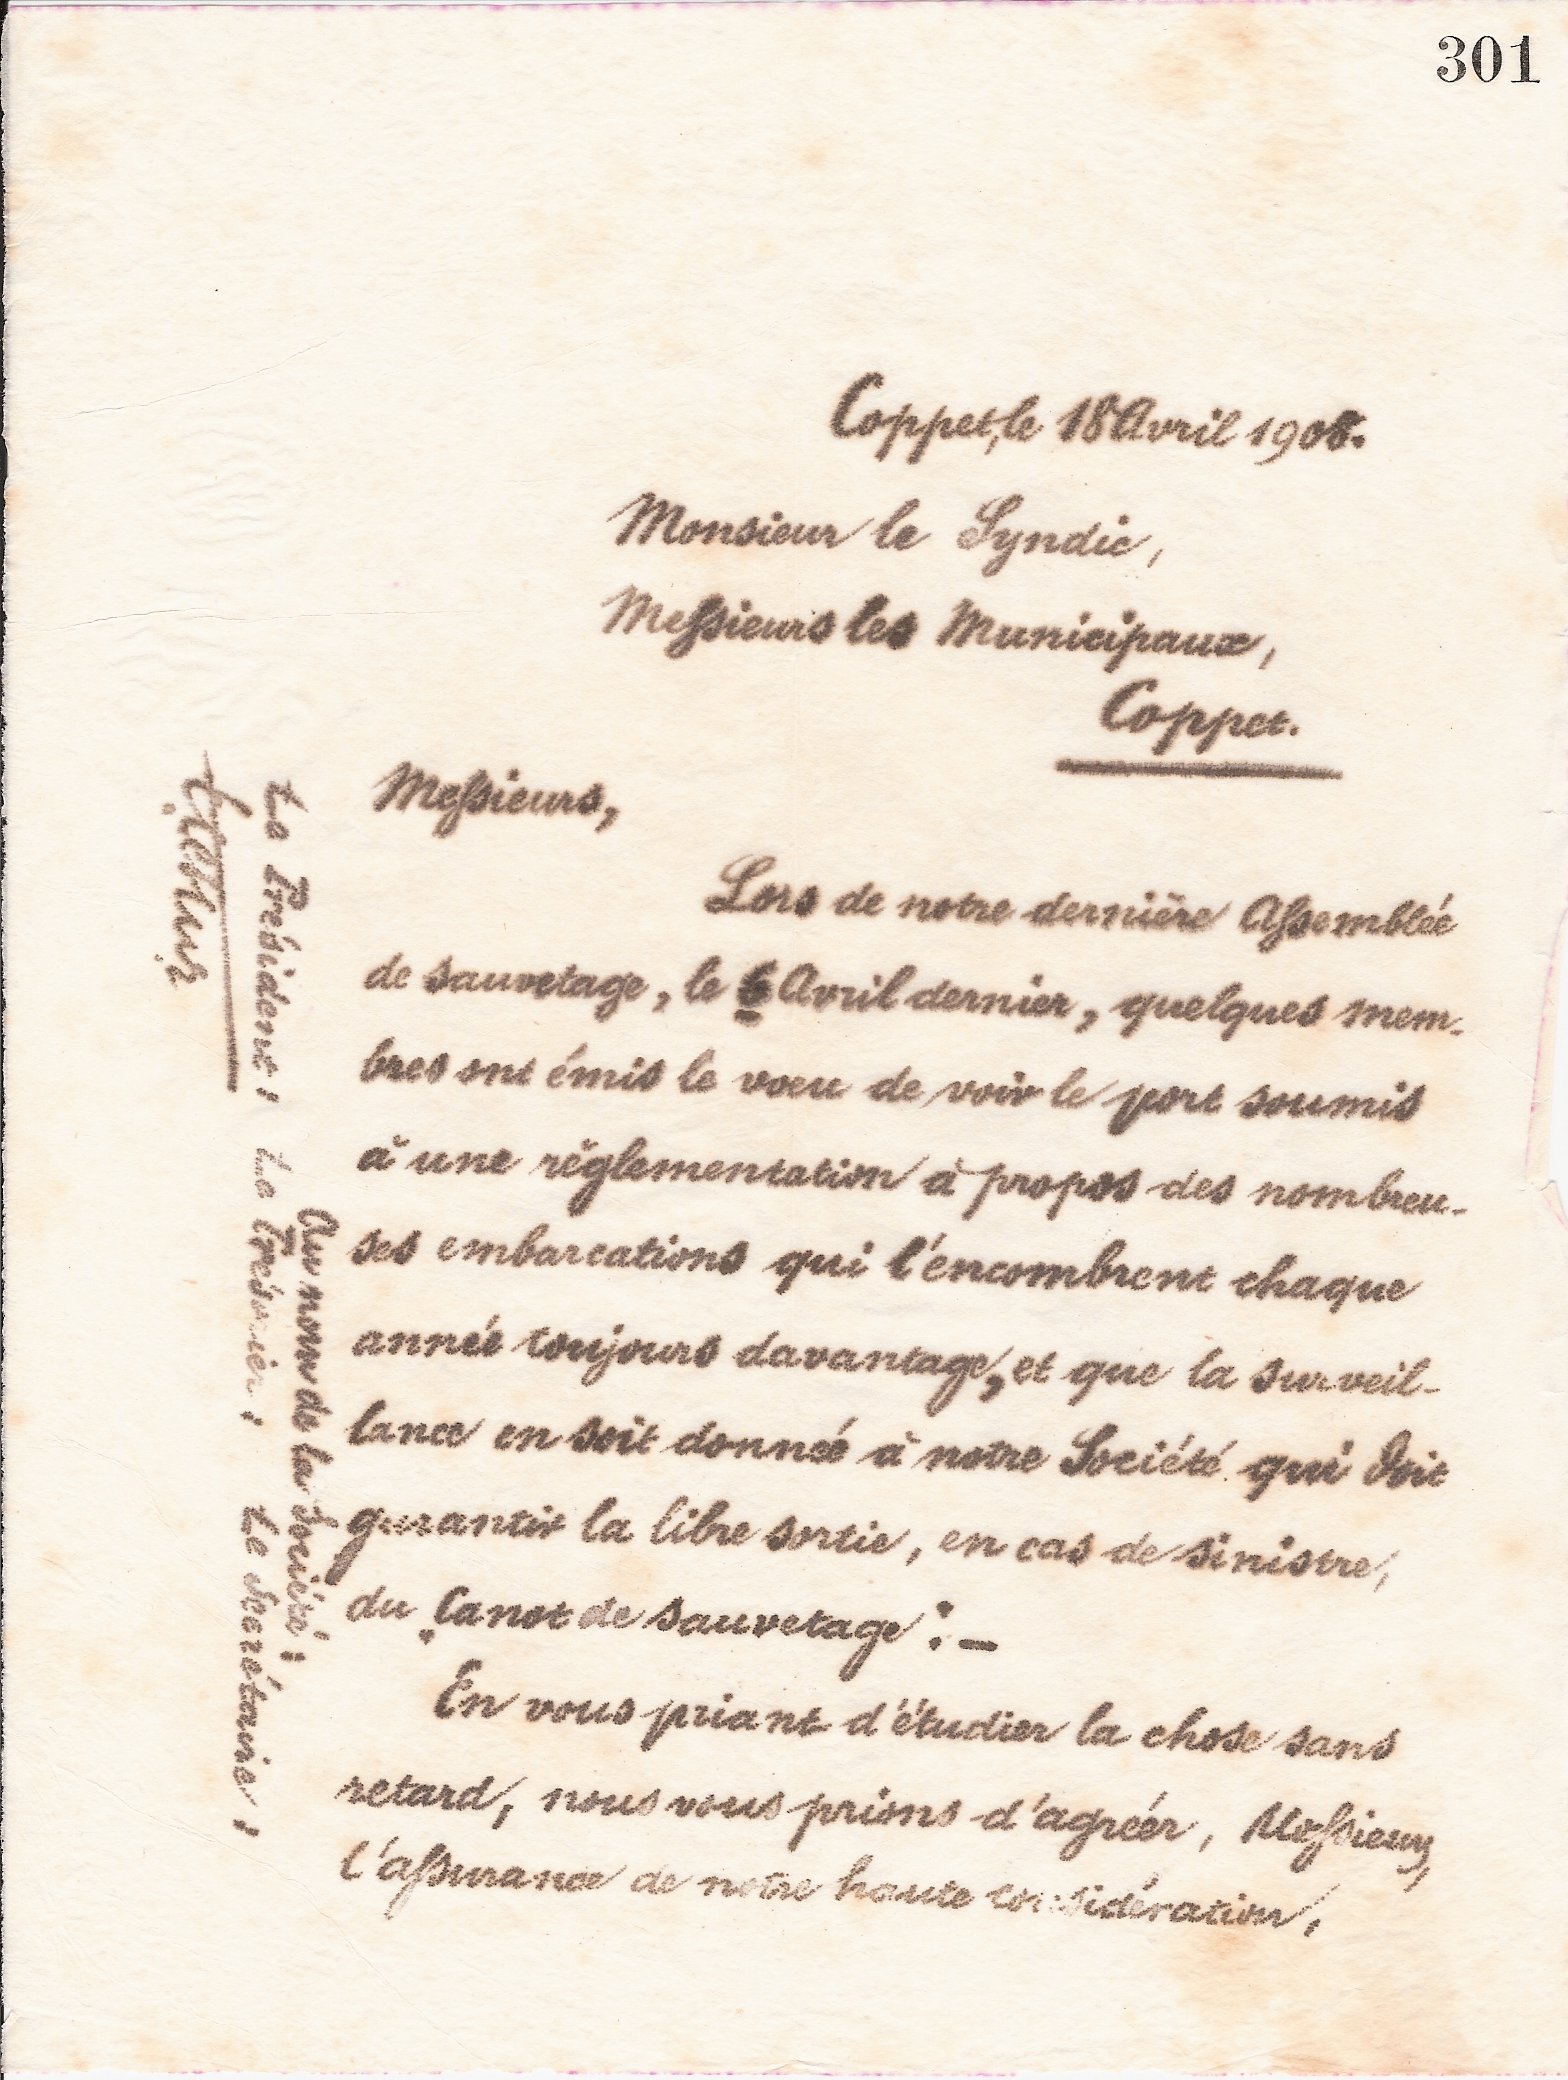 301
Coppet, le 18 Avril 1908.
Monsieur le Syndic,
Messieurs les Municipaux,
Coppet.
Messieurs,
Lors de notre dernière Assemblée
de sauvetage, le 6 Avril dernier, quelques mem-
bres ont émis le voeu de voir le port soumis
à une règlementation à propos des nombreu-
ses embarcations qui l'encombrent chaque
année toujours davantage, et que la surveil-
lance en soit donnée à notre Société qui doit
garantir la libre sortie, en cas de sinistre,
du "Canot de sauvetage". –
En vous priant d'étudier la chose sans
retard, nous vous prions d'agréér, Messieurs,
l'assurance de notre haute considération,
Au nom de la Société:
Le Président: Le Trésorier: Le Secrétaire: